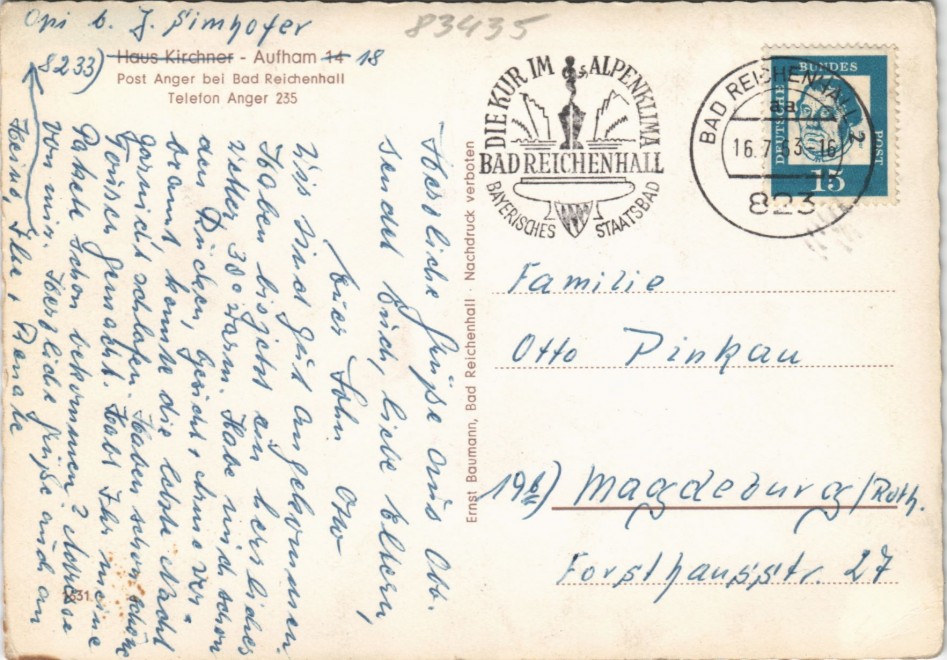 Opi b. J. Simhofer
83435
8233) Haus Kirchner - Aufham 14 18
Post Anger bei Bad Reichenhall
Telefon Anger 235
Herzliche Grüße aus Obb.
sendet Euch, liebe Eltern,
Euer Sohn Otto
Sind gut angekommen.
Haben bis jetzt ein herrliches
Wetter 30° warm. Habe mich schon
den Rücken, Gesicht, Arme ver-
brannt, konnte die letzte Nacht
garnicht schlafen. Haben schon schöne
Touren gemacht. Habt Ihr meine
Pakete schon bekommen? Adresse
von mir. Herzliche Grüße auch an
Heino, Ilse + Renate
1331
Ernst Baumann, Bad Reichenhall · Nachdruck verboten
DIE KUR IM ALPENKLIMA
BAD REICHENHALL
BAYERISCHES STAATSBAD
BAD REICHENHALL 2
aa
16.7.63-16
823
DEUTSCHE BUNDES POST
15
Familie
Otto Pinkau
19b) Magdeburg/Roth.
Forsthausstr. 27